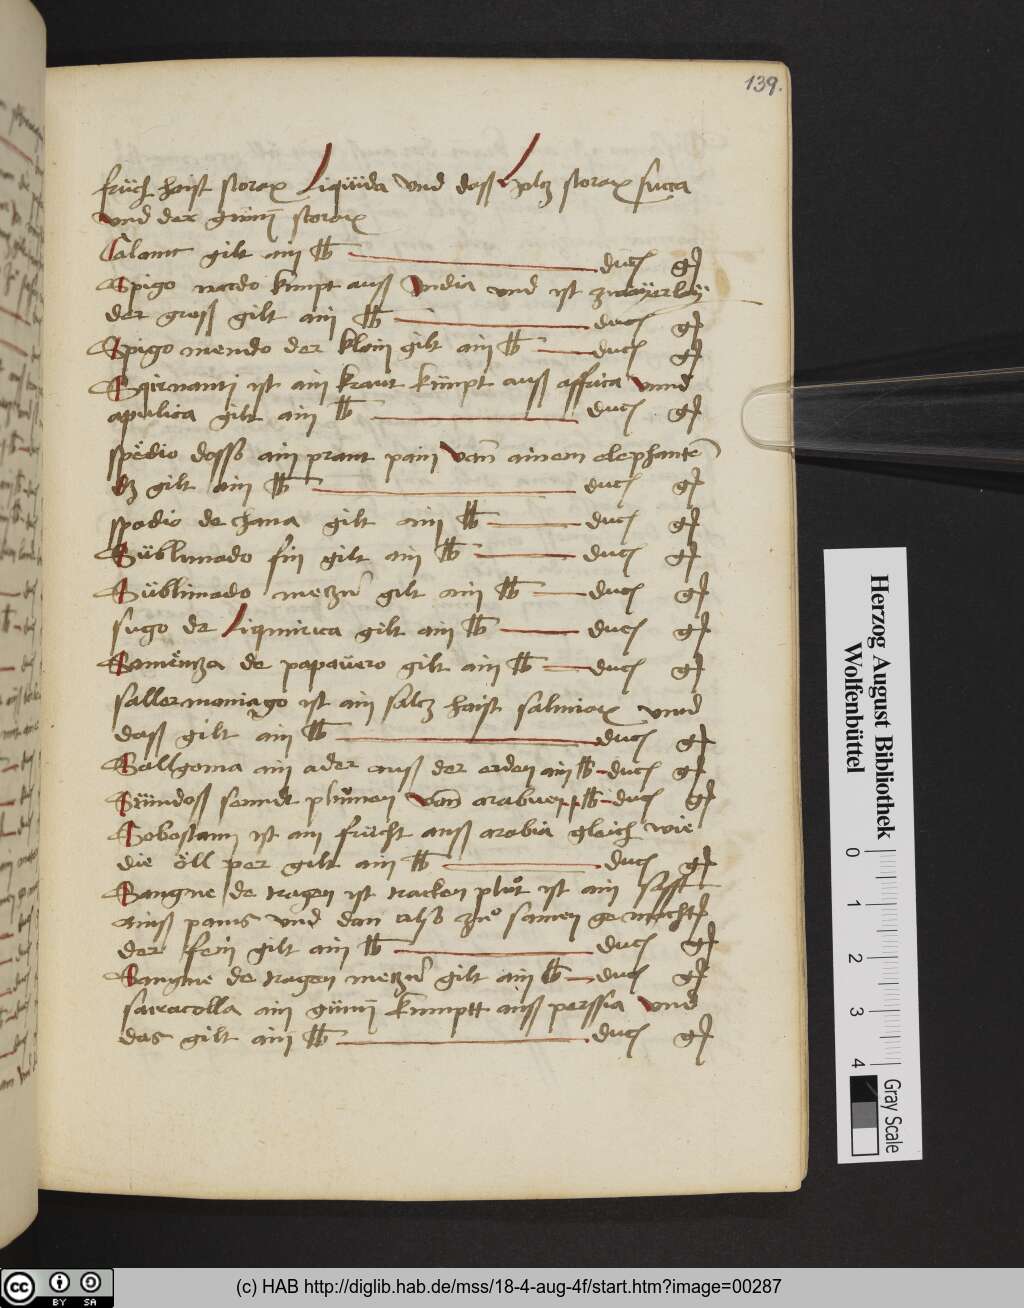 139.
frücht haist storax Liquida vnd dass Holtz storax sucra
vnd der gümi storax
Calamt gilt ain ℔ duc̄ g
Spigo nardo kimpt auss India vnd ist zwayerlay
der gross gilt ain ℔ duc̄ g
Spigo nendo der klain gilt ain ℔ duc̄ g
Sqirnanti ist ain kraut kümpt auss affrica vnnd
apulica gilt ain ℔ duc̄ g
spedio dosso ain prant pain van ainem elephante
dz gilt ain ℔ duc̄ g
spodio de chana gilt ain ℔ duc̄ g
Süblimado fin gilt ain ℔ duc̄ g
Süblimado gilt ain ℔ duc̄ g
sugo de Liquiriça gilt ain ℔ duc̄ g
Samentza de papauero gilt ain ℔ duc̄ g
sallermoniago ist ain saltz haist salmiax vnnd
dass gilt ain ℔ duc̄ g
Sallgema ain ader auss der erden ain ℔ duc̄ g
plumen van ℔ duc̄ g
Sebestann ist ain frücht auss arabia gleich wie
die öll per gilt ain ℔ duc̄ g
Sangne de tragen ist tracken plüt ist ain safft
ainss pams vnd dan also zuo samen gemacht
der fein gilt ain ℔ duc̄ g
Sangne de tragen gilt ain ℔ duc̄ g
saracolla ain gümi kümptt auss perssia vnd
das gilt ain ℔ duc̄ g
Herzog August Bibliothek
Wolfenbüttel
0 1 2 3 4
Gray Scale
cc BY SA
(c) HAB http://diglib.hab.de/mss/18-4-aug-4f/start.htm?image=00287